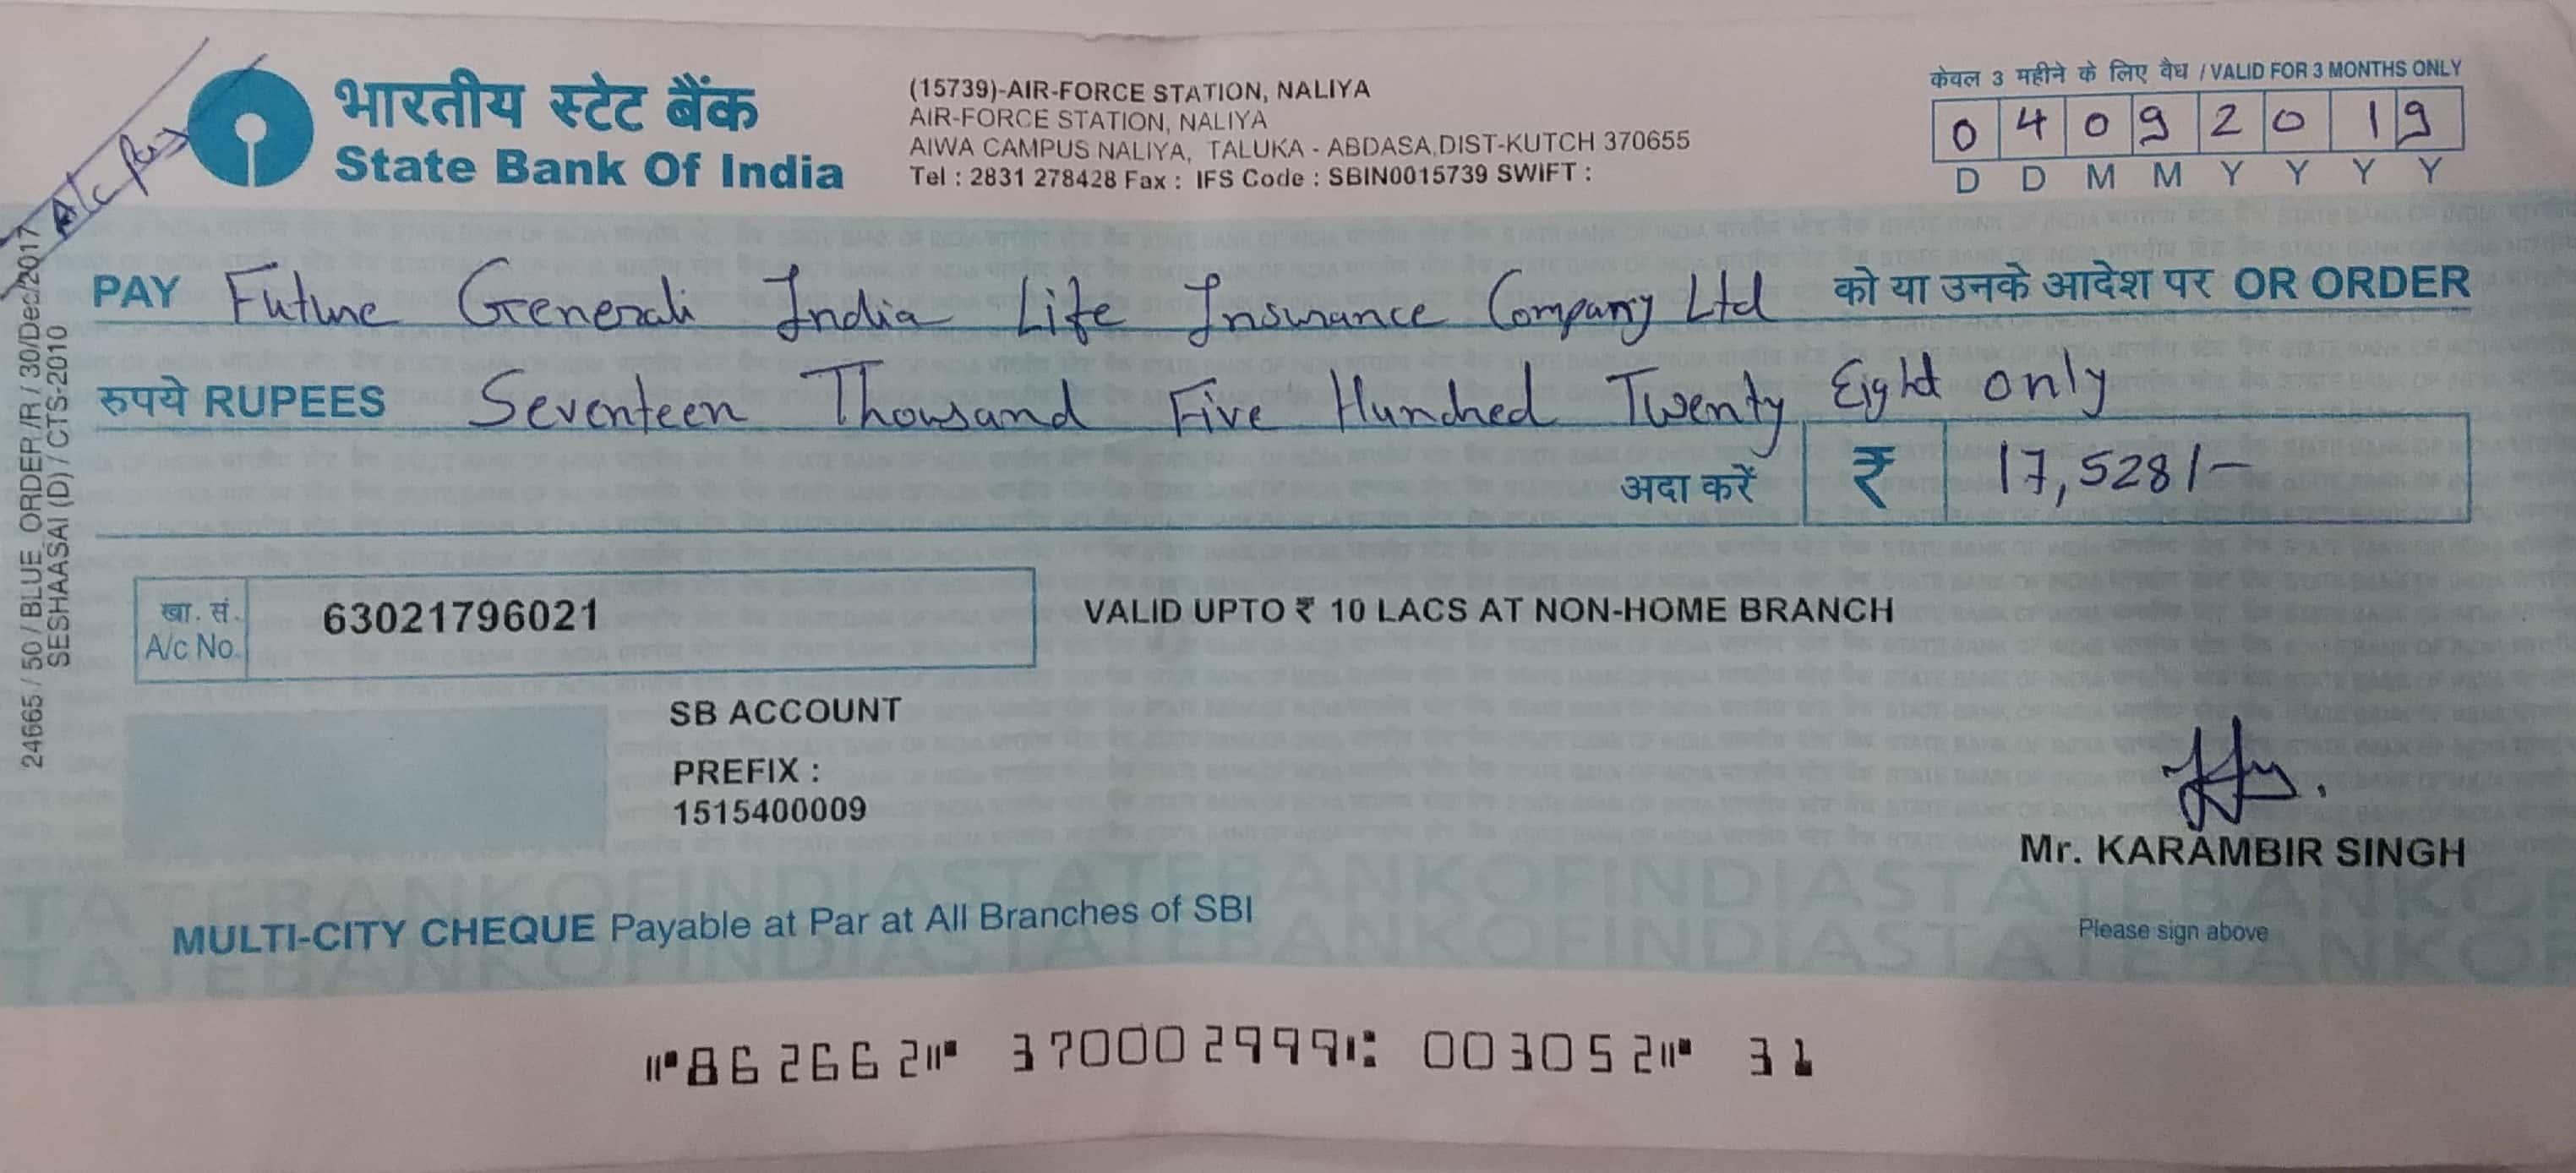 A/c payee
भारतीय स्टेट बैंक
State Bank Of India
(15739)-AIR-FORCE STATION, NALIYA
AIR-FORCE STATION, NALIYA
AIWA CAMPUS NALIYA, TALUKA - ABDASA,DIST-KUTCH 370655
Tel : 2831 278428 Fax : IFS Code : SBIN0015739 SWIFT :
केवल 3 महीने के लिए वैध / VALID FOR 3 MONTHS ONLY
0 4 0 9 2 0 1 9
D D M M Y Y Y Y
PAY Future Generali India Life Insurance Company Ltd को या उनके आदेश पर OR ORDER
रुपये RUPEES Seventeen Thousand Five Hundred Twenty Eight only
अदा करें ₹ 17,528/-
खा. सं. A/c No. 63021796021
VALID UPTO ₹ 10 LACS AT NON-HOME BRANCH
SB ACCOUNT
PREFIX :
1515400009
Mr. KARAMBIR SINGH
Please sign above
MULTI-CITY CHEQUE Payable at Par at All Branches of SBI
⑈862662⑈ 370002999⑆ 003052⑈ 31
24665 / 50 / BLUE_ORDER /R / 30/Dec/2017
SESHAASAI (D) / CTS-2010